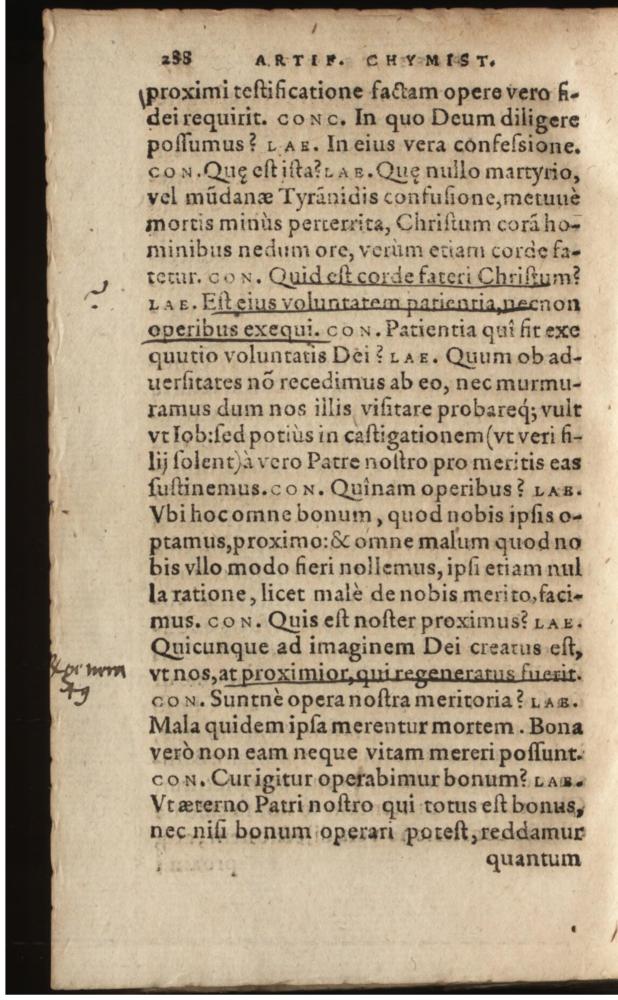 288 ARTIF. CHYMIST.
proximi testificatione factam opere vero fi-
dei requirit. CONC. In quo Deum diligere
possumus? LAE. In eius vera confessione.
CON. Quę est ista? LAE. Quę nullo martyrio,
vel mūdanæ Tyrānidis confusione, metuuè
mortis minùs perterrita, Christum corā ho-
minibus nedum ore, verùm etiam corde fa-
tetur. CON. Quid est corde fateri Christum?
LAE. Est eius voluntatem patientia, necnon
operibus exequi. CON. Patientia quî fit exe
quutio voluntatis Dei? LAE. Quum ob ad-
uersitates nō recedimus ab eo, nec murmu-
ramus dum nos illis visitare probareq; vult
vt Iob: sed potiùs in castigationem (vt veri fi-
lij solent) à vero Patre nostro pro meritis eas
sustinemus. CON. Quînam operibus? LAE.
Vbi hoc omne bonum, quod nobis ipsis o-
ptamus, proximo: & omne malum quod no
bis vllo modo fieri nollemus, ipsi etiam nul
la ratione, licet malè de nobis merito, faci-
mus. CON. Quis est noster proximus? LAE.
Quicunque ad imaginem Dei creatus est,
vt nos, at proximior, qui regeneratus fuerit.
CON. Suntnè opera nostra meritoria? LAE.
Mala quidem ipsa merentur mortem. Bona
verò non eam neque vitam mereri possunt.
CON. Cur igitur operabimur bonum? LAE.
Vt æterno Patri nostro qui totus est bonus,
nec nisi bonum operari potest, reddamur
quantum